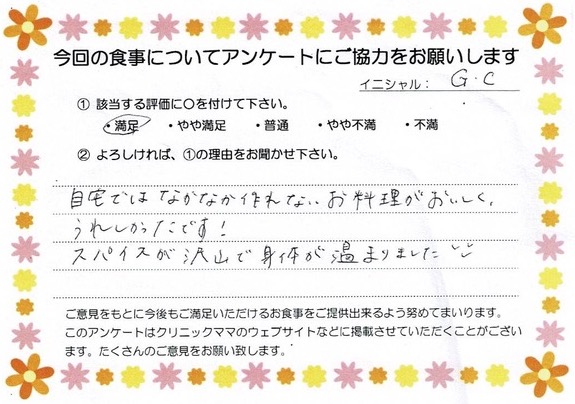 今回の食事についてアンケートにご協力をお願いします
イニシャル： G・C
① 該当する評価に○を付けて下さい。
・満足 ・やや満足 ・普通 ・やや不満 ・不満
② よろしければ、①の理由をお聞かせ下さい。
自宅ではなかなか作れないお料理がおいしく、
うれしかったです！
スパイスが沢山で身体が温まりました
ご意見をもとに今後もご満足いただけるお食事をご提供出来るよう努めてまいります。
このアンケートはクリニックママのウェブサイトなどに掲載させていただくことがござい
ます。たくさんのご意見をお願い致します。